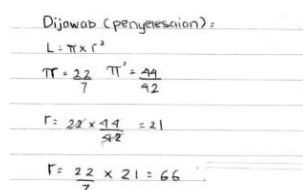 Dijawab (penyelesaian):
L = π x r²
π = 22/7 π² = 44/42
r = 22 x 44/42 = 21
r = 22/7 x 21 = 66